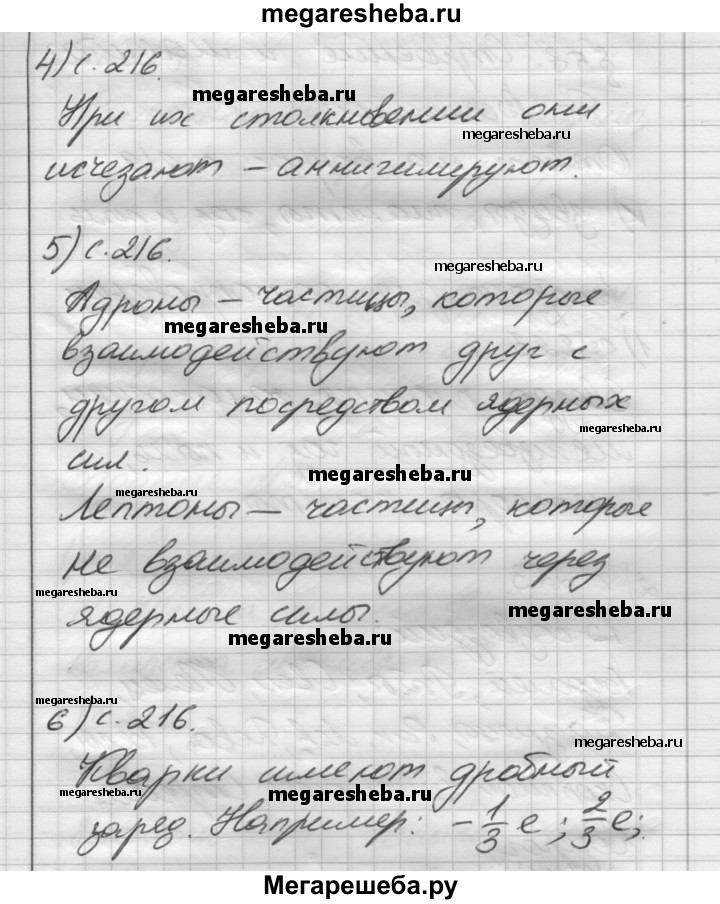 megaresheba.ru
4) с. 216.
megaresheba.ru
При их столкновении они
megaresheba.ru
исчезают – аннигилируют.
5) с. 216.
megaresheba.ru
Адроны – частицы, которые
megaresheba.ru
взаимодействуют друг с
другом посредством ядерных
megaresheba.ru
сил.
megaresheba.ru
megaresheba.ru
Лептоны – частицы, которые
не взаимодействуют через
megaresheba.ru
megaresheba.ru
ядерные силы.
megaresheba.ru
megaresheba.ru
6) с. 216.
megaresheba.ru
Кварки имеют дробный
megaresheba.ru
megaresheba.ru
заряд. Например: -1/3 е; 2/3 е;
Мегарешеба.ру